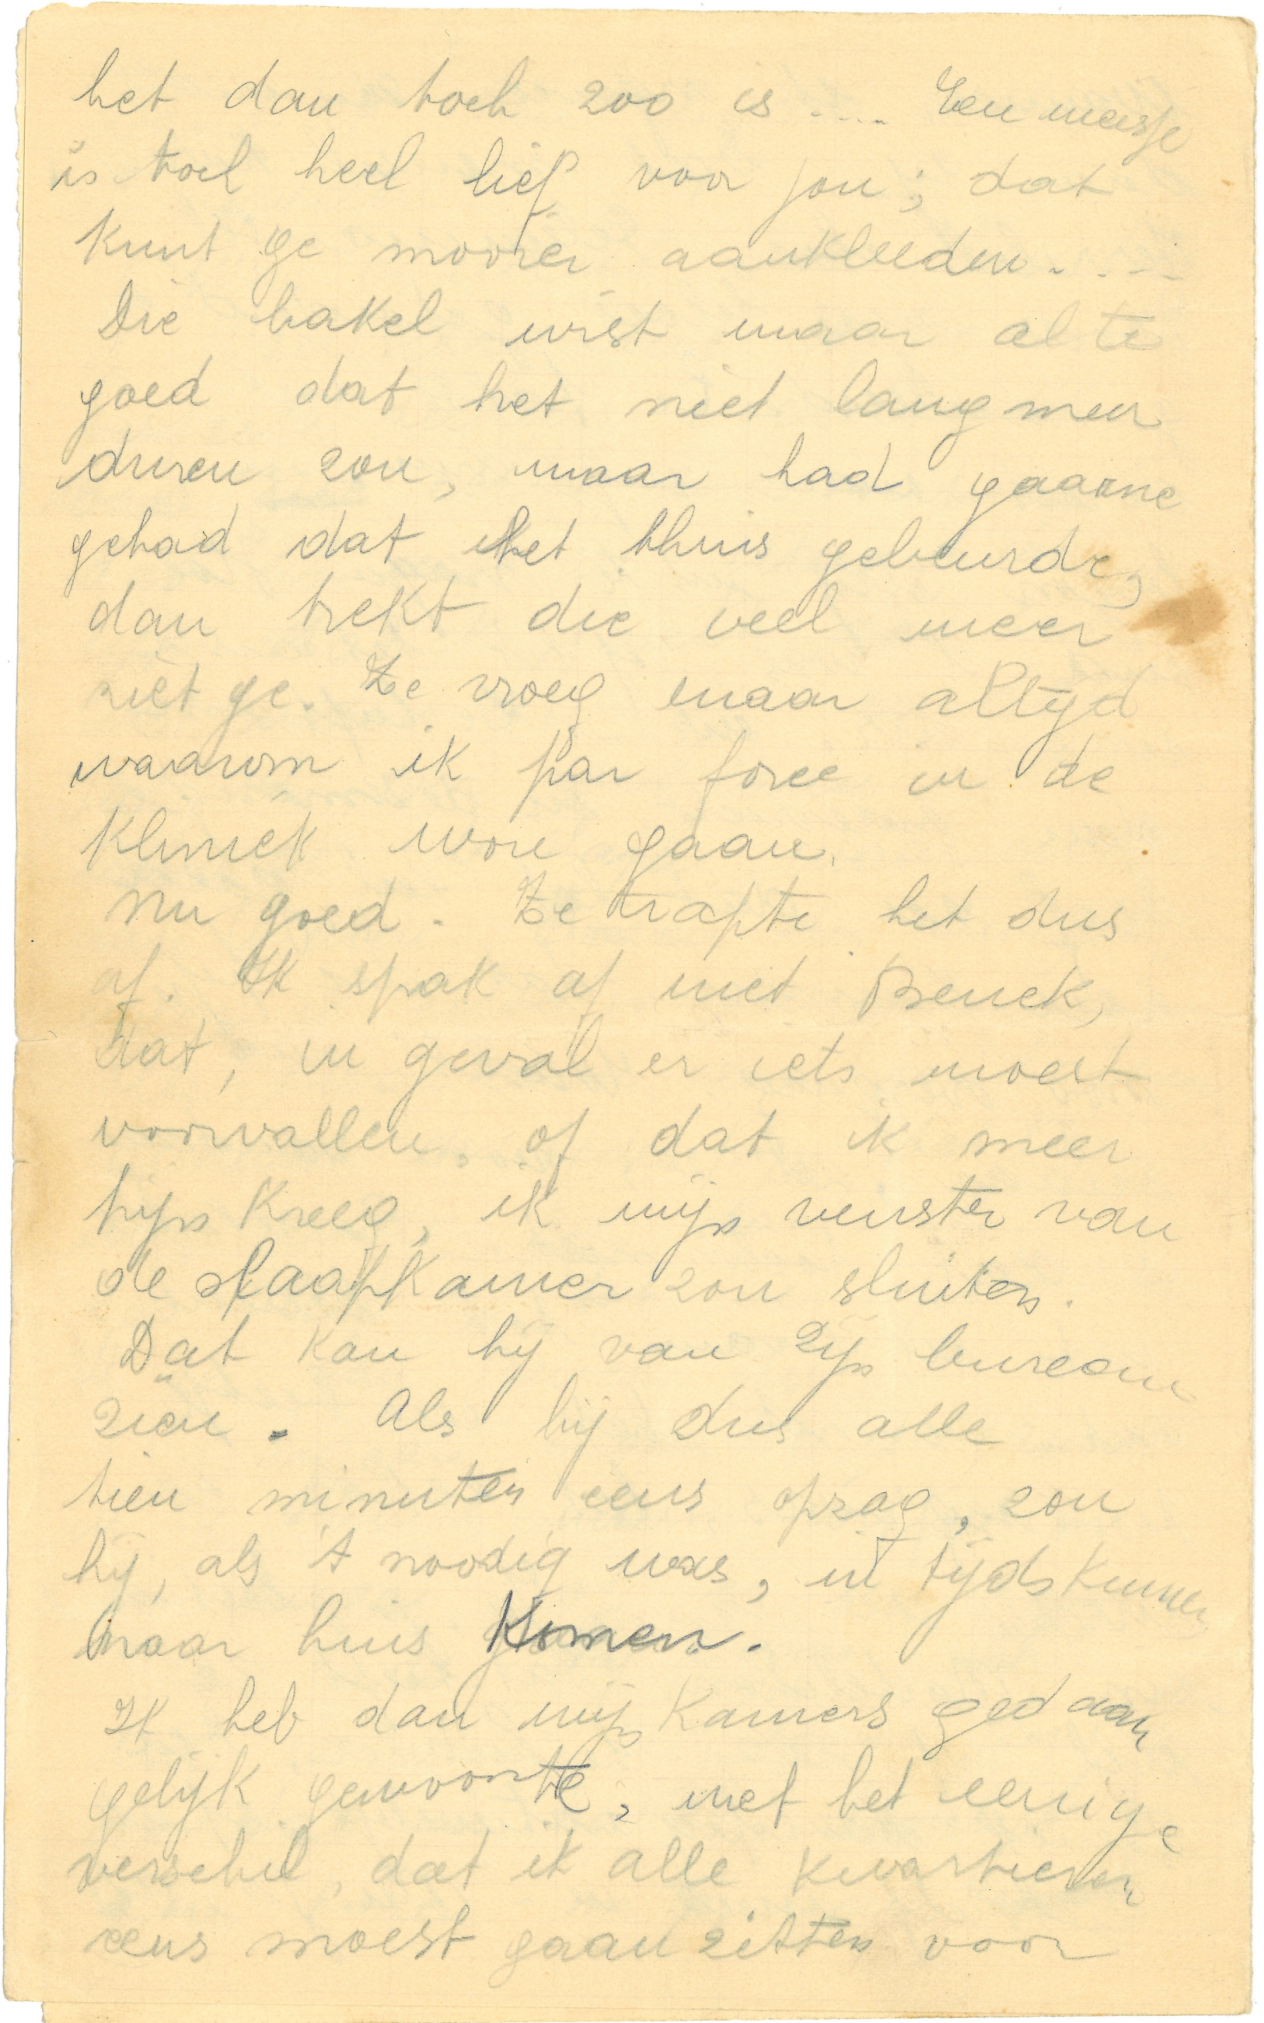 het dan toch zoo is .... Een meisje
is toch heel lief voor jou; dat
kunt ge mooier aankleeden. ...
Die bakel wist maar al te
goed dat het niet lang meer
duren zou, maar had gaarne
gehad dat het thuis gebeurde,
dan trekt die veel meer
ziet ge. Ze vroeg maar altijd
waarom ik par force in de
Kliniek wou gaan.
Nu goed. Ze trapte het dus
af. Ik sprak af met Benek,
dat, in geval er iets moest
voorvallen, of dat ik meer
pijn kreeg, ik mijn venster van
de slaapkamer zou sluiten.
Dat kan hij van zijn bureau
zien. Als hij dus alle
tien minuten eens opzag, zou
hij, als 't noodig was, in tijds kunnen
naar huis komen.
Ik heb dan mijn kamers gedaan
gelijk gewoonte, met het eenige
verschil, dat ik alle kwartieren
eens moest gaan zitten voor